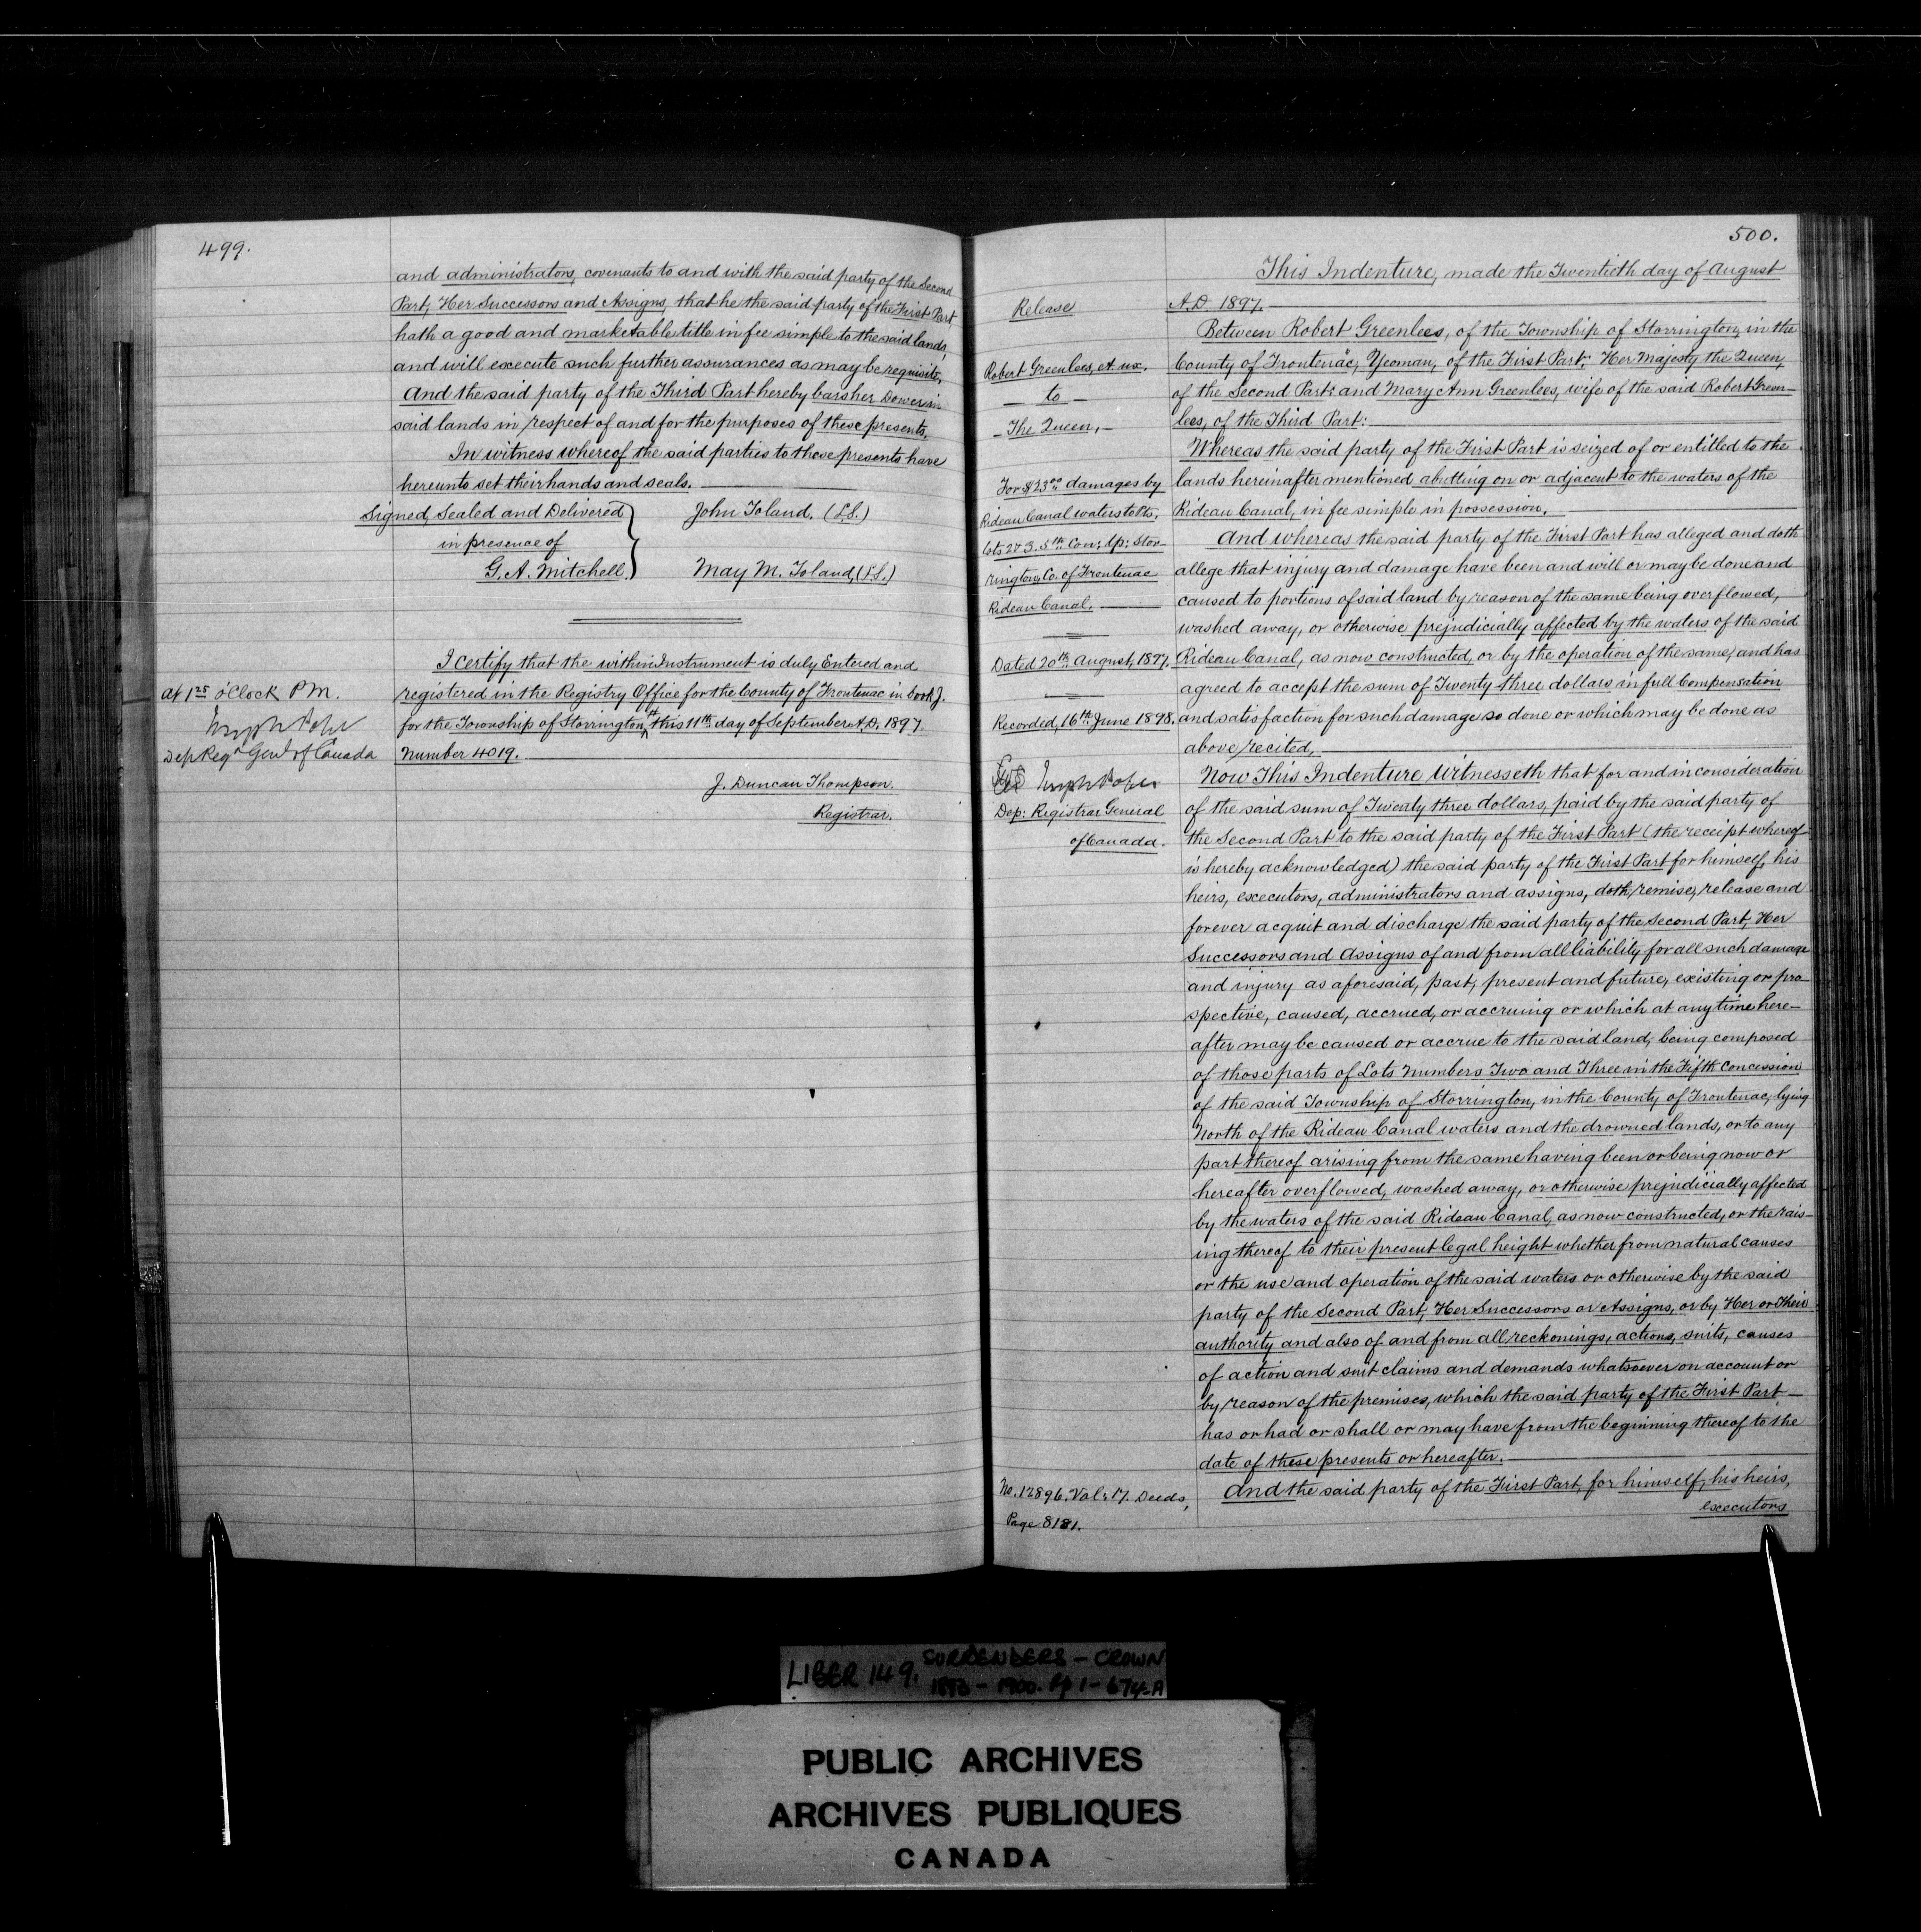 499.
and administrators, covenants to and with the said party of the Second
Part, Her Successors and Assigns, that he the said party of the First Part
hath a good and marketable title in fee simple to the said lands,
and will execute such further assurances as may be requisite.
And the said party of the Third Part hereby bars her Dower in
said lands in respect of and for the purposes of these presents.
In witness whereof the said parties to these presents have
hereunto set their hands and seals.
Signed, Sealed and Delivered
in presence of
G. A. Mitchell.
John Toland. (L.S.)
May M. Toland, (L.S.)
I certify that the within Instrument is duly Entered and
registered in the Registry Office for the County of Frontenac in book J.
for the Township of Storrington, this 11th day of September A.D. 1897.
Number 4019.
J. Duncan Thompson.
Registrar.
at 1 25 o'Clock P.M.
Dep Regr Genl of Canada
500.
Release
Robert Greenlees, et ux.
— to —
— The Queen. —
For $23 00 damages by
Rideau Canal waters to Pts.
Lots 2 & 3. 5th Con: Tp: Stor-
rington, Co. of Frontenac
Rideau Canal.
Dated 20th August, 1897.
Recorded, 16th June 1898.
Dep: Registrar General
of Canada.
No. 12896. Vol: 17. Deeds,
Page 8181.
This Indenture, made the Twentieth day of August
A.D. 1897.
Between Robert Greenlees, of the Township of Storrington, in the
County of Frontenac, Yeoman, of the First Part: Her Majesty the Queen,
of the Second Part: and Mary Ann Greenlees, wife of the said Robert Green-
lees, of the Third Part:
Whereas the said party of the First Part is seized of or entitled to the
lands hereinafter mentioned abutting on or adjacent to the waters of the
Rideau Canal, in fee simple in possession.
And whereas the said party of the First Part has alleged and doth
allege that injury and damage have been and will or may be done and
caused to portions of said land by reason of the same being overflowed,
washed away, or otherwise prejudicially affected by the waters of the said
Rideau Canal, as now constructed, or by the operation of the same, and has
agreed to accept the sum of Twenty three dollars in full Compensation
and satisfaction for such damage so done or which may be done as
above recited,
Now This Indenture Witnesseth that for and in consideration
of the said sum of Twenty three dollars, paid by the said party of
the Second Part to the said party of the First Part (the receipt whereof
is hereby acknowledged) the said party of the First Part for himself, his
heirs, executors, administrators and assigns, doth, remise, release and
forever acquit and discharge the said party of the Second Part, Her
Successors and Assigns of and from all liability for all such damage
and injury as aforesaid, past, present and future, existing or pro-
spective, caused, accrued, or accruing or which at any time here-
after may be caused or accrue to the said land, being composed
of those parts of Lots Numbers Two and Three in the Fifth Concession
of the said Township of Storrington, in the County of Frontenac, lying
North of the Rideau Canal waters and the drowned lands, or to any
part thereof arising from the same having been or being now or
hereafter overflowed, washed away, or otherwise prejudicially affected
by the waters of the said Rideau Canal, as now constructed, or the rais-
ing thereof to their present legal height whether from natural causes
or the use and operation of the said waters or otherwise by the said
party of the Second Part, Her Successors or Assigns, or by Her or Their
authority and also of and from all reckonings, actions, suits, causes
of action and suit claims and demands whatsoever on account or
by reason of the premises, which the said party of the First Part
has or had or shall or may have from the beginning thereof to the
date of these presents or hereafter.
And the said party of the First Part, for himself, his heirs,
executors
LIBER 149. SURRENDERS - CROWN
1893 - 1900. Pp 1 - 674-A
PUBLIC ARCHIVES
ARCHIVES PUBLIQUES
CANADA